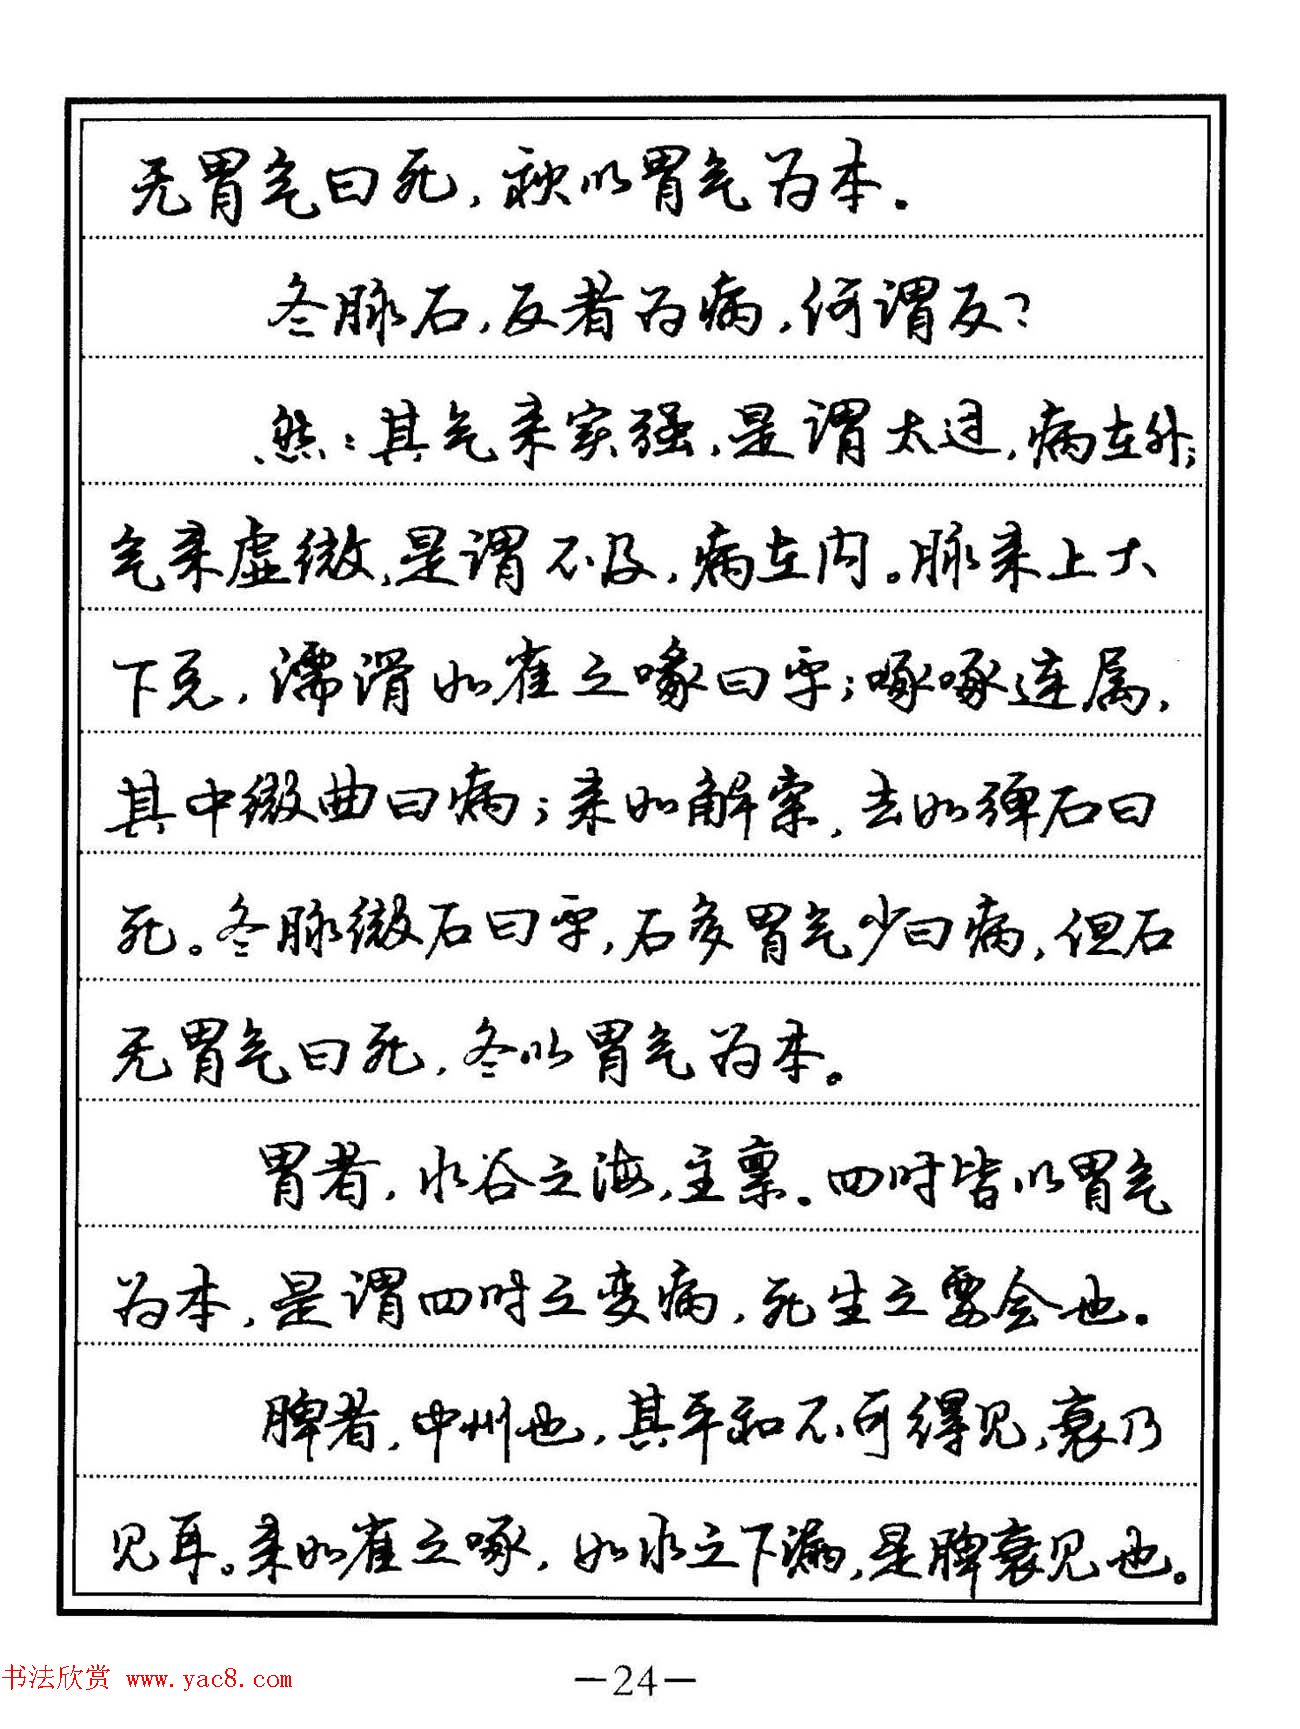 无胃气曰死,秋以胃气为本。
冬脉石,反者为病,何谓反?
然:其气来实强,是谓太过,病在外;
气来虚微,是谓不及,病在内。脉来上大
下兑,濡滑如雀之喙曰平;啄啄连属,
其中微曲曰病;来如解索,去如弹石曰
死。冬脉微石曰平,石多胃气少曰病,但石
无胃气曰死,冬以胃气为本。
胃者,水谷之海,主禀。四时皆以胃气
为本,是谓四时之变病,死生之要会也。
脾者,中州也,其平和不可得见,衰乃
见耳。来如雀之啄,如水之下漏,是脾衰见也。
书法欣赏 www.yac8.com
—24—